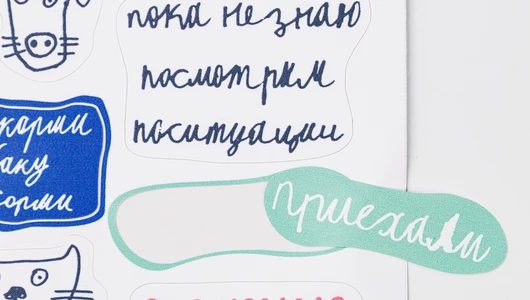 пока не знаю
посмотрим
поситуации
корми
баку
корми
приехали